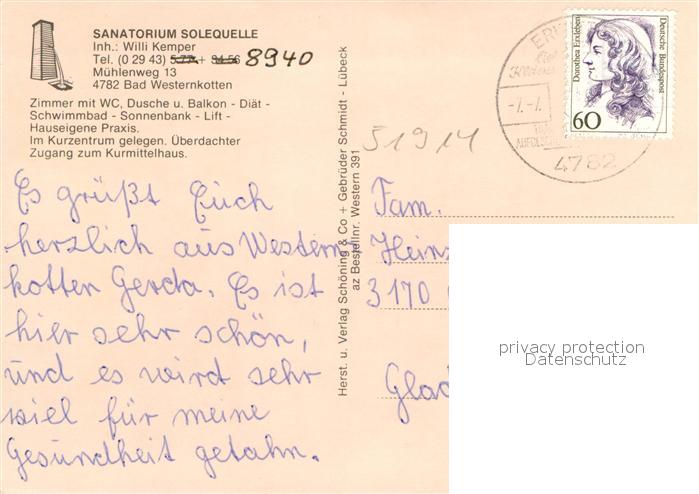 SANATORIUM SOLEQUELLE
Inh.: Willi Kemper
Tel. (0 29 43) 5 77 + 84 56 8940
Mühlenweg 13
4782 Bad Westernkotten
Zimmer mit WC, Dusche u. Balkon - Diät -
Schwimmbad - Sonnenbank - Lift -
Hauseigene Praxis.
Im Kurzentrum gelegen. Überdachter
Zugang zum Kurmittelhaus.
Es grüßt Euch
herzlich aus Western
kotten Gerda. Es ist
hier sehr schön,
und es wird sehr
viel für meine
Gesundheit getahn.
Herst. u. Verlag Schöning & Co + Gebrüder Schmidt - Lübeck
az Bestellnr. Western 391
51914
4782
Dorothea Erxleben
Deutsche Bundespost
60
Fam.
Heinz
3170
Glad
privacy protection
Datenschutz